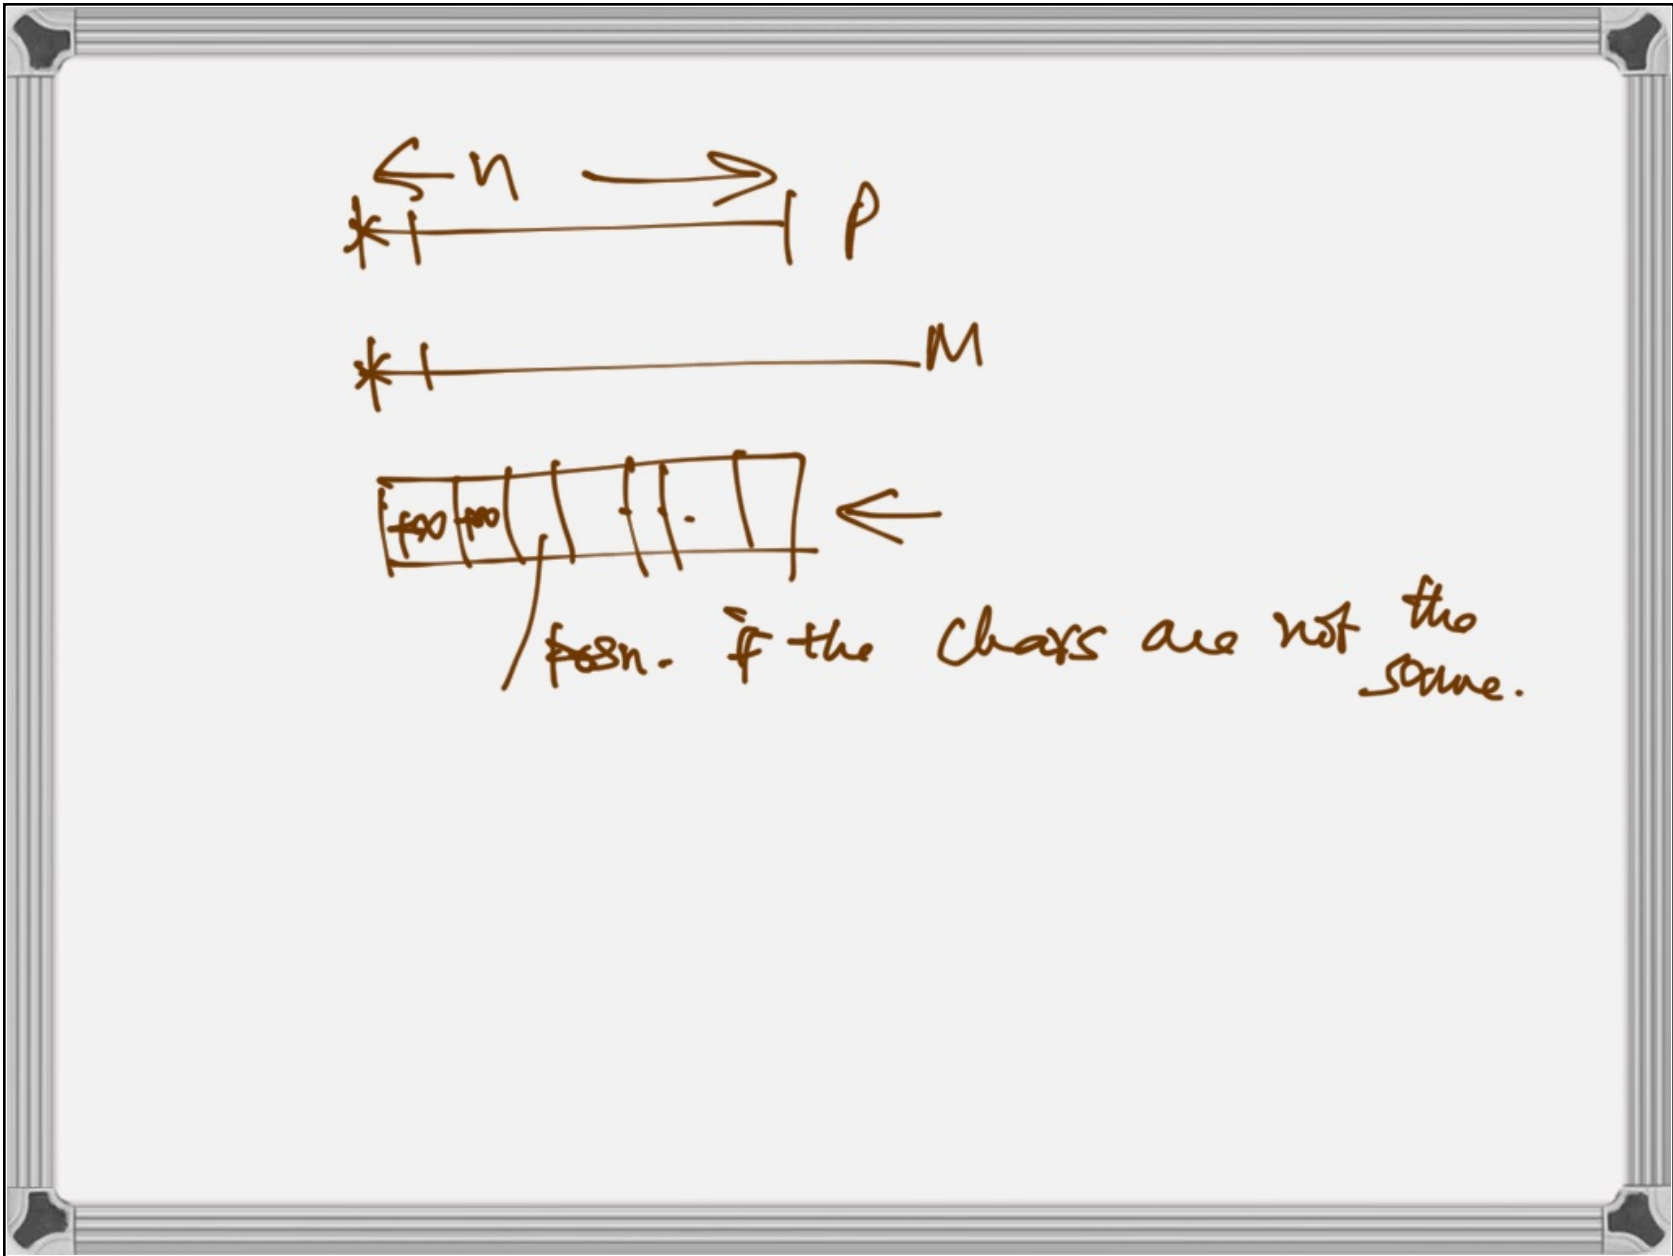 ← n → P
* M
+∞ +∞
posn. if the chars are not the
same.